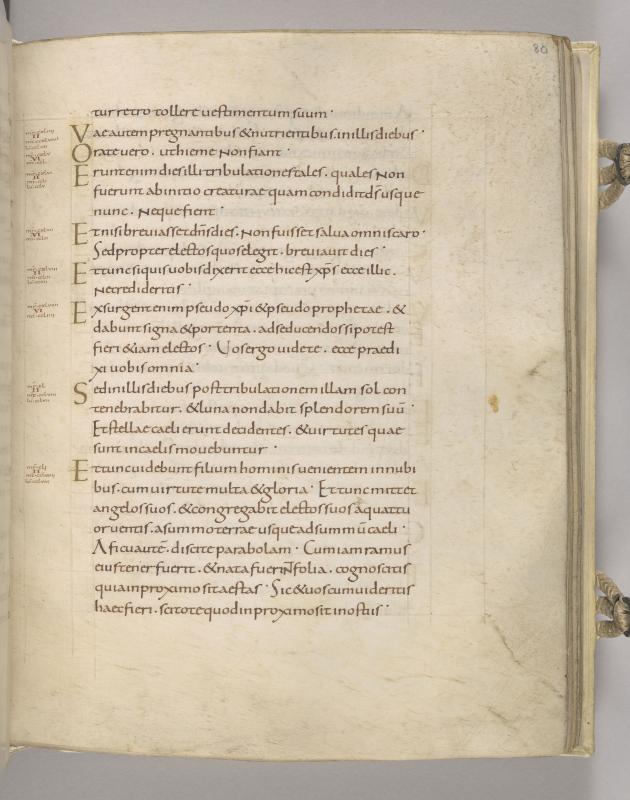 80
tur retro tollere uestimentum suum ·
Vae autem pregnantibus & nutrientibus. in illis diebus ·
Orate uero . ut hieme Non fiant ·
Erunt enim dies illi tribulationes tales . quales Non
fuerunt ab initio creaturae quam condidit ds usque
nunc . Neque fient ·
Et nisi breuiasset dns dies . Non fuisset salua omnis caro ·
Sed propter electos quos elegit . breuiauit dies ·
Et tunc si quis uobis dixerit ecce hic est xps ecce illic .
Ne credideritis ·
Exsurgent enim pseudo xpi & pseudo prophetae . &
dabunt signa & portenta . ad seducendos si potest
fieri & iam electos · Uos ergo uidete . ecce praedi
xi uobis omnia ·
Sed in illis diebus post tribulationem illam sol con
tenebrabitur . & luna non dabit splendorem suū ·
Et stellae caeli erunt decidentes . & uirtutes quae
sunt in caelis mouebuntur ·
Et tunc uidebunt filium hominis uenientem in nubi
bus . cum uirtute multa & gloria · Et tunc mittet
angelos suos . & congregabit electos suos a quattu
or uentis . a summo terrae usque ad summū caeli ·
A ficu autē . discite parabolam · Cum iam ramus
eius tener fuerit . & nata fuerint folia . cognoscitis
quia in proximo sit aestas · Sic & uos cum uideritis
haec fieri . scitote quod in proximo sit in ostiis ·